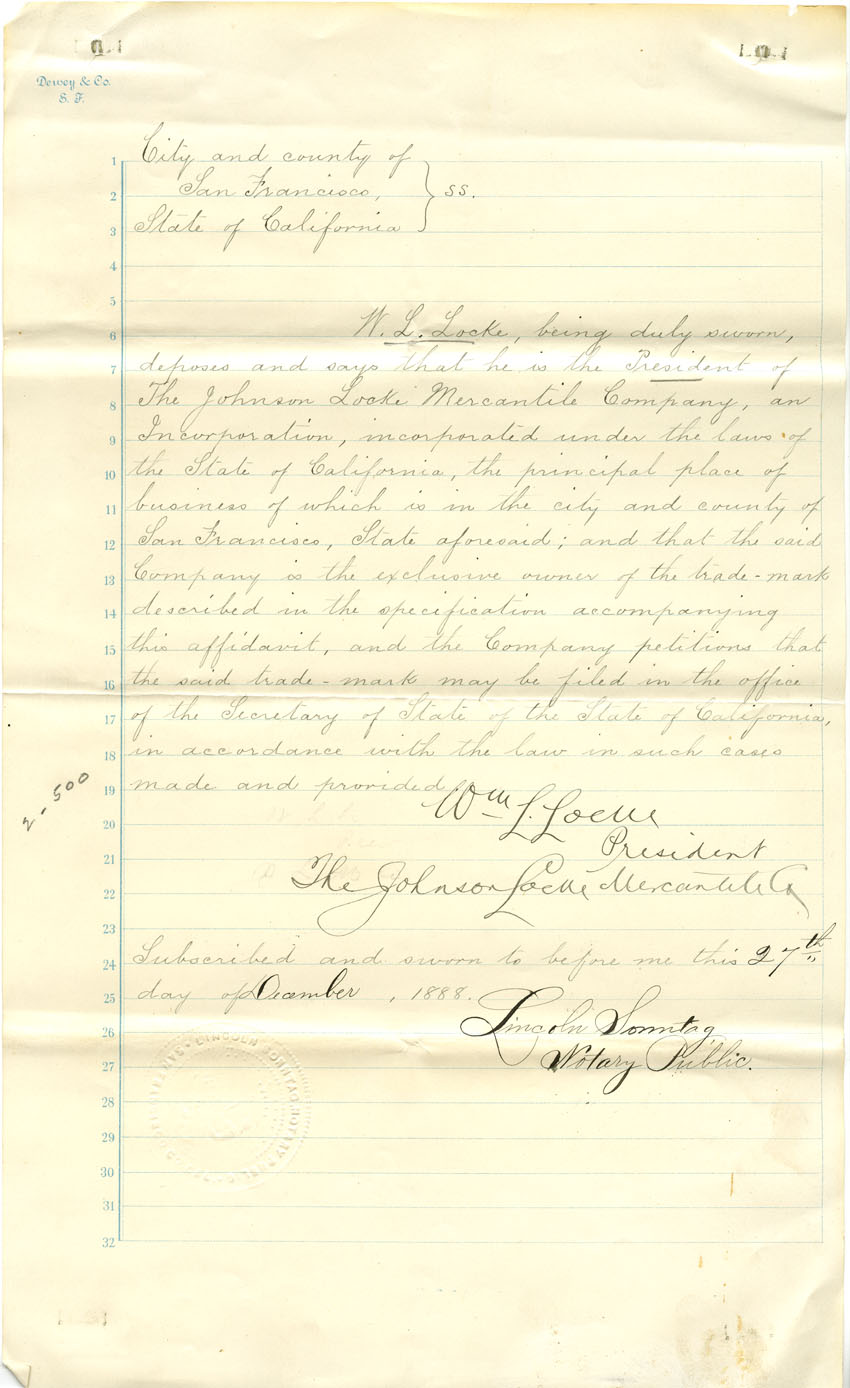 Dewey & Co.
S. F.
1 City and county of
2 San Francisco, } ss.
3 State of California
4
5
6 W. L. Locke, being duly sworn,
7 deposes and says that he is the President of
8 The Johnson Locke Mercantile Company, an
9 Incorporation, incorporated under the laws of
10 the State of California, the principal place of
11 business of which is in the city and county of
12 San Francisco, State aforesaid; and that the said
13 Company is the exclusive owner of the trade-mark
14 described in the specification accompanying
15 this affidavit, and the Company petitions that
16 the said trade-mark may be filed in the office
17 of the Secretary of State of the State of California,
18 in accordance with the law in such cases
19 made and provided.
2-500
Wm L. Locke
20
President
21
The Johnson Locke Mercantile Co
22
23
24 Subscribed and sworn to before me this 27th
25 day of December, 1888.
26 Lincoln Sonntag
27 Notary Public.
LINCOLN SONNTAG NOTARY PUBLIC
28
29
30
31
32